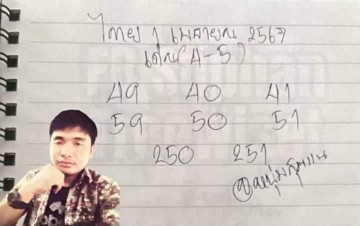 ไทย 1 เมษายน 2567
เด่น(4-5)
49 40 41
59 50 51
250 251